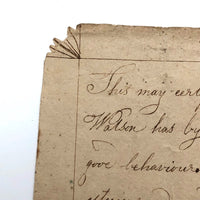 This may cert
Watson has by
gove behaviour.